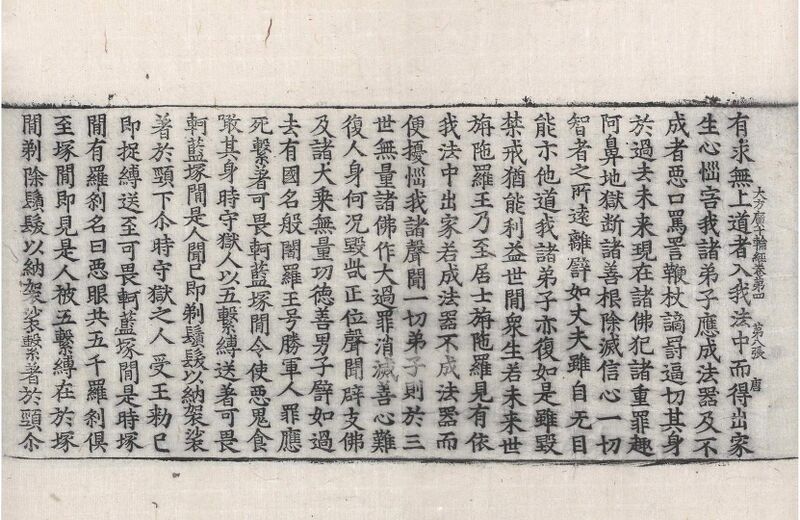 有求無上道者入我法中而得出家
大方廣十輪經卷第四 第八張 唐
生心惱害我諸弟子應成法器及不
成者惡口罵詈鞭杖謫罰逼切其身
於過去未来現在諸佛犯諸重罪趣
阿鼻地獄斷諸善根除滅信心一切
智者之所遠離譬如丈夫雖自无目
能亦他道我諸弟子亦復如是雖毀
禁戒猶能利益世間衆生若未来世
旃陁羅王乃至居士旃陁羅見有依
我法中出家若成法器不成法器而
便擾惱我諸聲聞一切弟子則於三
世無量諸佛作大過罪消滅善心難
復人身何况毀呰正位聲聞辟支佛
及諸大乘無量功德善男子譬如過
去有國名般闍羅王号勝軍人罪應
死繫著可畏軻藍塚間令使惡鬼食
噉其身時守獄人以五繫縛送著可畏
軻藍塚間是人聞已即剃鬚髮以納袈裟
著於頸下尒時守獄之人受王勑已
即捉縛送至可畏軻藍塚間是時塚
間有羅刹名曰惡眼共五千羅刹俱
至塚間即見是人被五繫縛在於塚
間剃除鬚髮以納袈裟繫著於頸尒